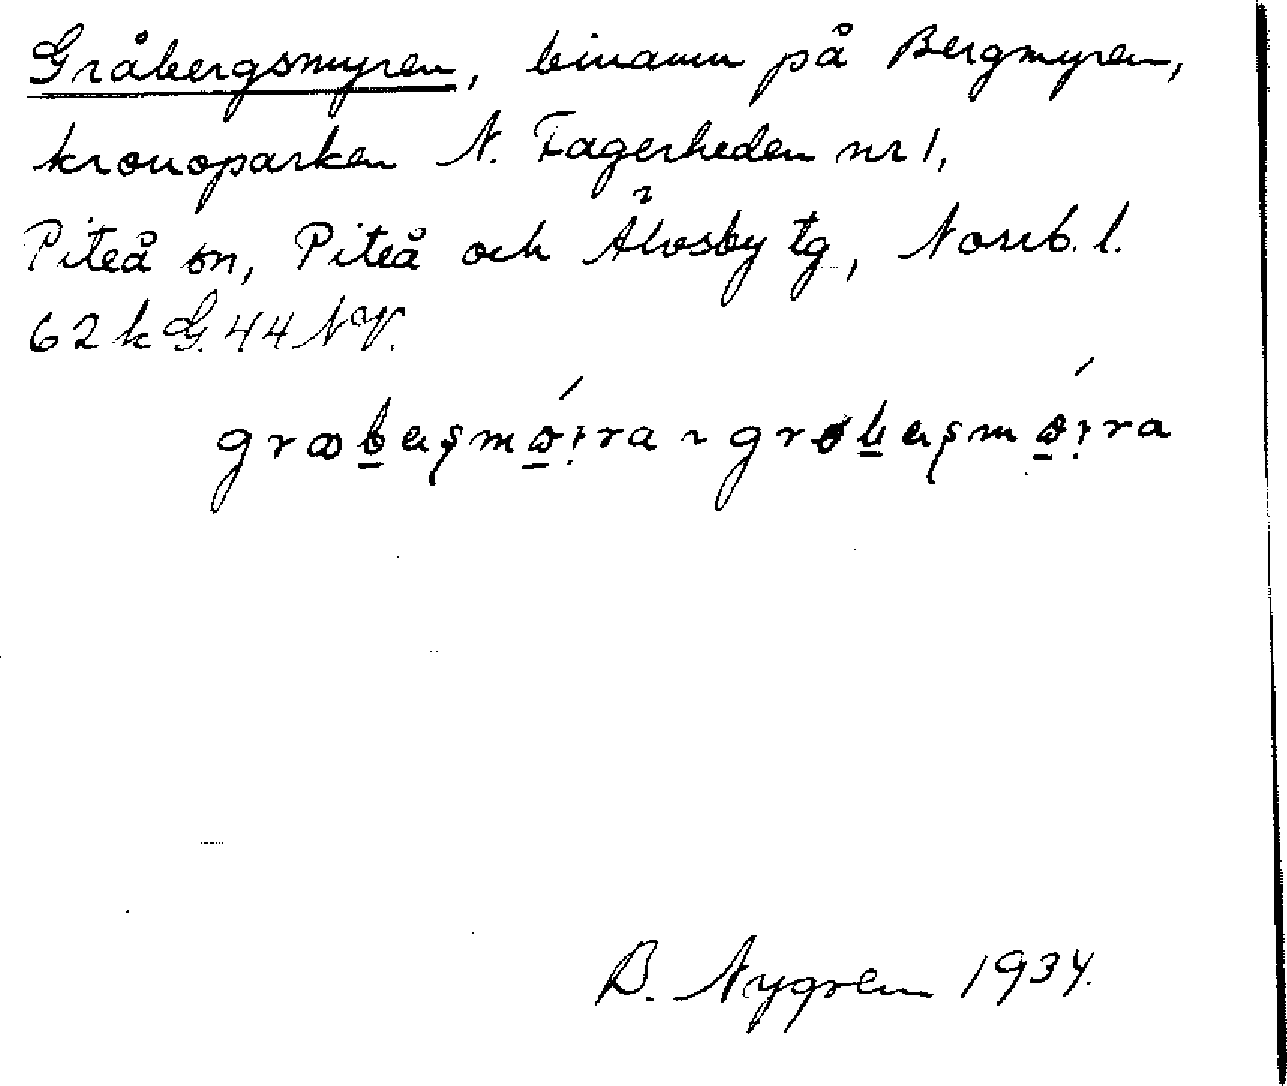 Gråbergsmyren, binamn på Bergmyren,
kronoparken N. Fagerheden nr 1,
Piteå sn, Piteå och Älvsby tg, Norrb. l.
62 k G. 44 NV.
B. Nygren 1934.